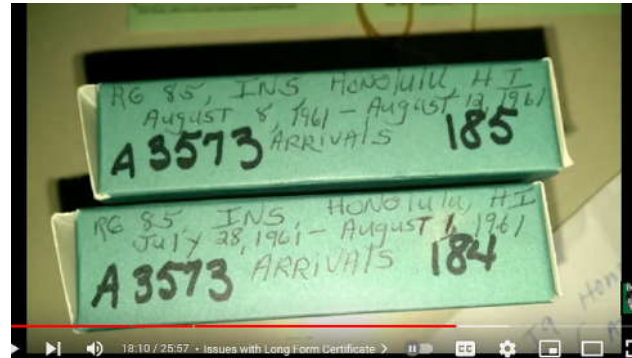 RG 85, INS HONOlUlU, HI
AUGUST 8, 1961 – AUGUST 12, 1961
A3573 ARRIVAlS 185
RG 85, INS, HONOlUlU, HI
July 28, 1961 – AUGUST 1, 1961
A 3573 ARRIVAlS 184
HON
18:10 / 25:57 • Issues with Long Form Certificate >
CC